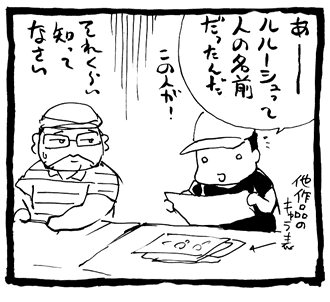 あーー
ルルーシュって
人の名前
だったんだ
この人が!
それくらい
知って
なさい
他作品の
きゅうきん